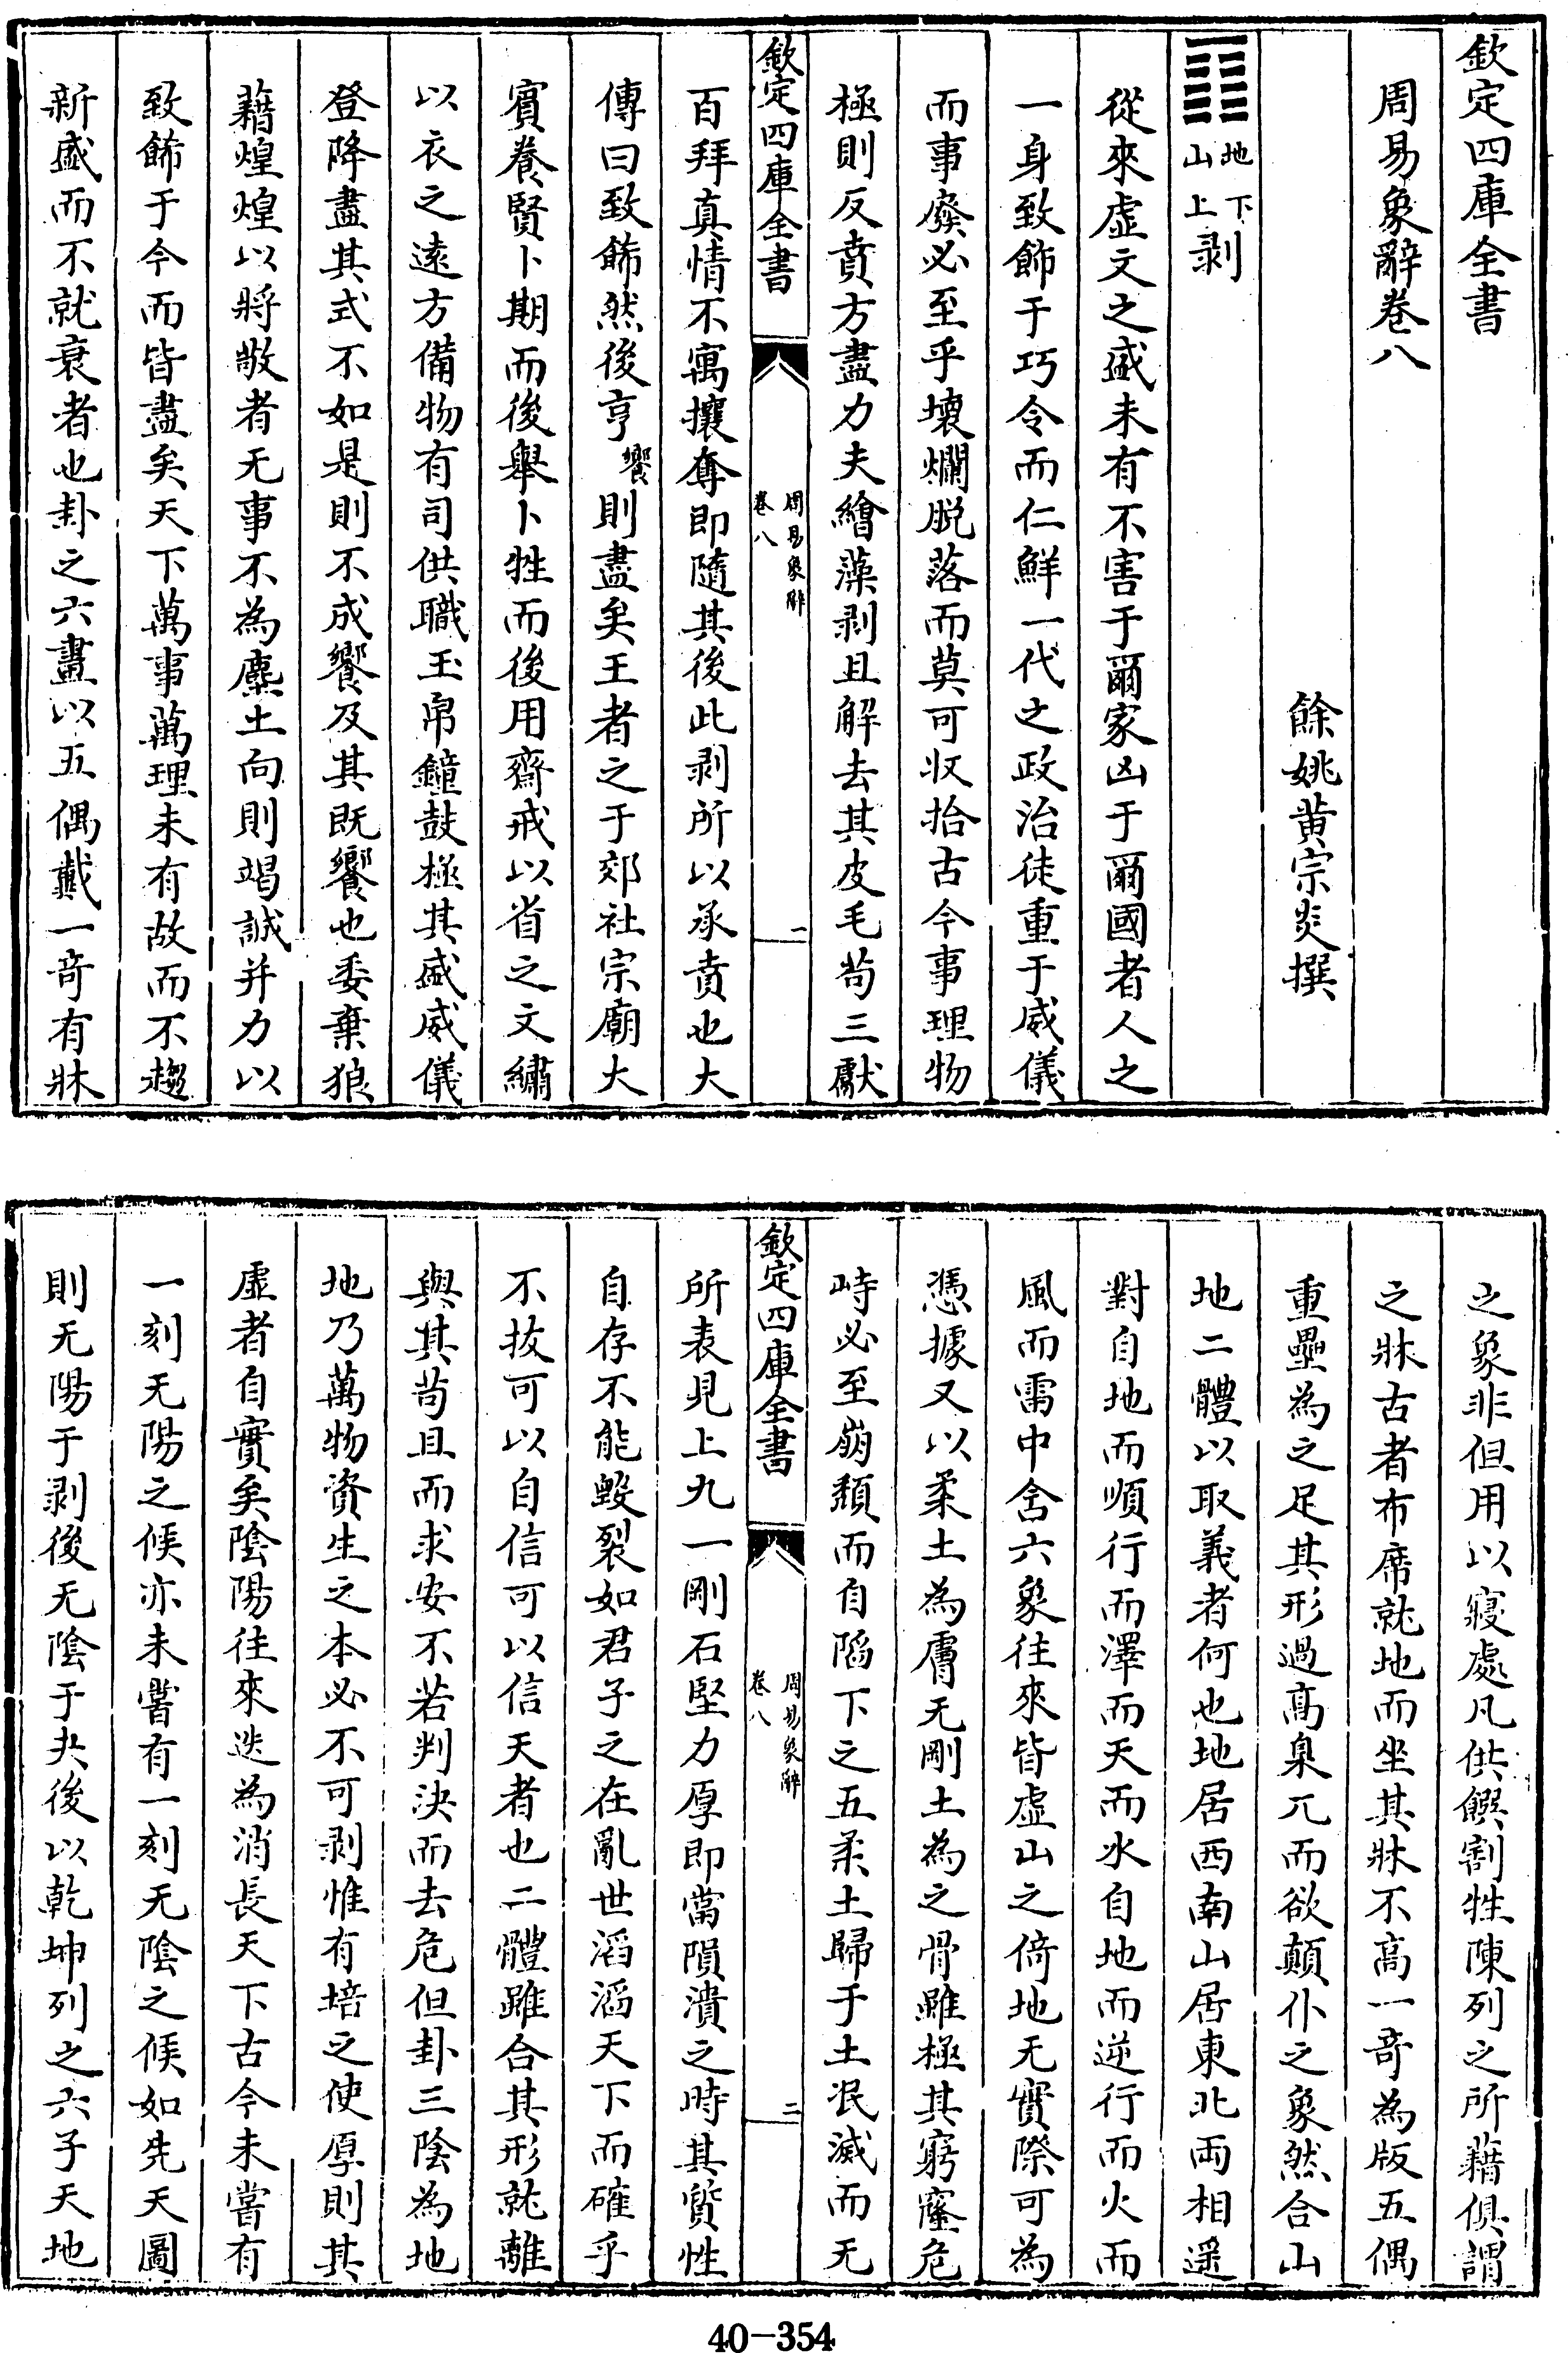 欽定四庫全書
周易象辭卷八
餘姚黄宗炎撰
地下山上剥
從來虚文之盛未有不害于爾家凶于爾國者人之
一身致飾于巧令而仁鮮一代之政治徒重于威儀
而事廢必至乎壞爛脱落而莫可收拾古今事理物
極則反賁方盡力夫繪藻剥且解去其皮毛苟三獻
欽定四庫全書
周易象辭
卷八
一
百拜真情不寓攘奪即隨其後此剥所以承賁也大
傳曰致飾然後亨饗則盡矣王者之于郊社宗廟大
賓養賢卜期而後舉卜牲而後用齋戒以省之文繡
以衣之遠方備物有司供職玉帛鐘鼓極其盛威儀
登降盡其式不如是則不成饗及其既饗也委棄狼
藉煌煌以將敬者无事不為塵土向則竭誠并力以
致飾于今而皆盡矣天下萬事萬理未有故而不趨
新盛而不就衰者也卦之六畫以五偶戴一奇有牀
之象非但用以寢處凡供饌割牲陳列之所藉俱謂
之牀古者布席就地而坐其牀不高一奇為版五偶
重壘為之足其形過高臬兀而欲顛仆之象然合山
地二體以取義者何也地居西南山居東北兩相遥
對自地而順行而澤而天而水自地而逆行而火而
風而雷中含六象往來皆虚山之倚地无實際可為
憑據又以柔土為膚无剛土為之骨雖極其窮窿危
峙必至崩頽而自陷下之五柔土歸于土泯滅而无
欽定四庫全書
周易象辭
卷八
二
所表見上九一剛石堅力厚即當隕潰之時其質性
自存不能毀裂如君子之在亂世滔滔天下而確乎
不拔可以自信可以信天者也二體雖合其形就離
與其苟且而求安不若判決而去危但卦三陰為地
地乃萬物資生之本必不可剥惟有培之使厚則其
虚者自實矣陰陽往來迭為消長天下古今未嘗有
一刻无陽之候亦未嘗有一刻无陰之候如先天圖
則无陽于剥後无陰于夬後以乾坤列之六子天地
40-354